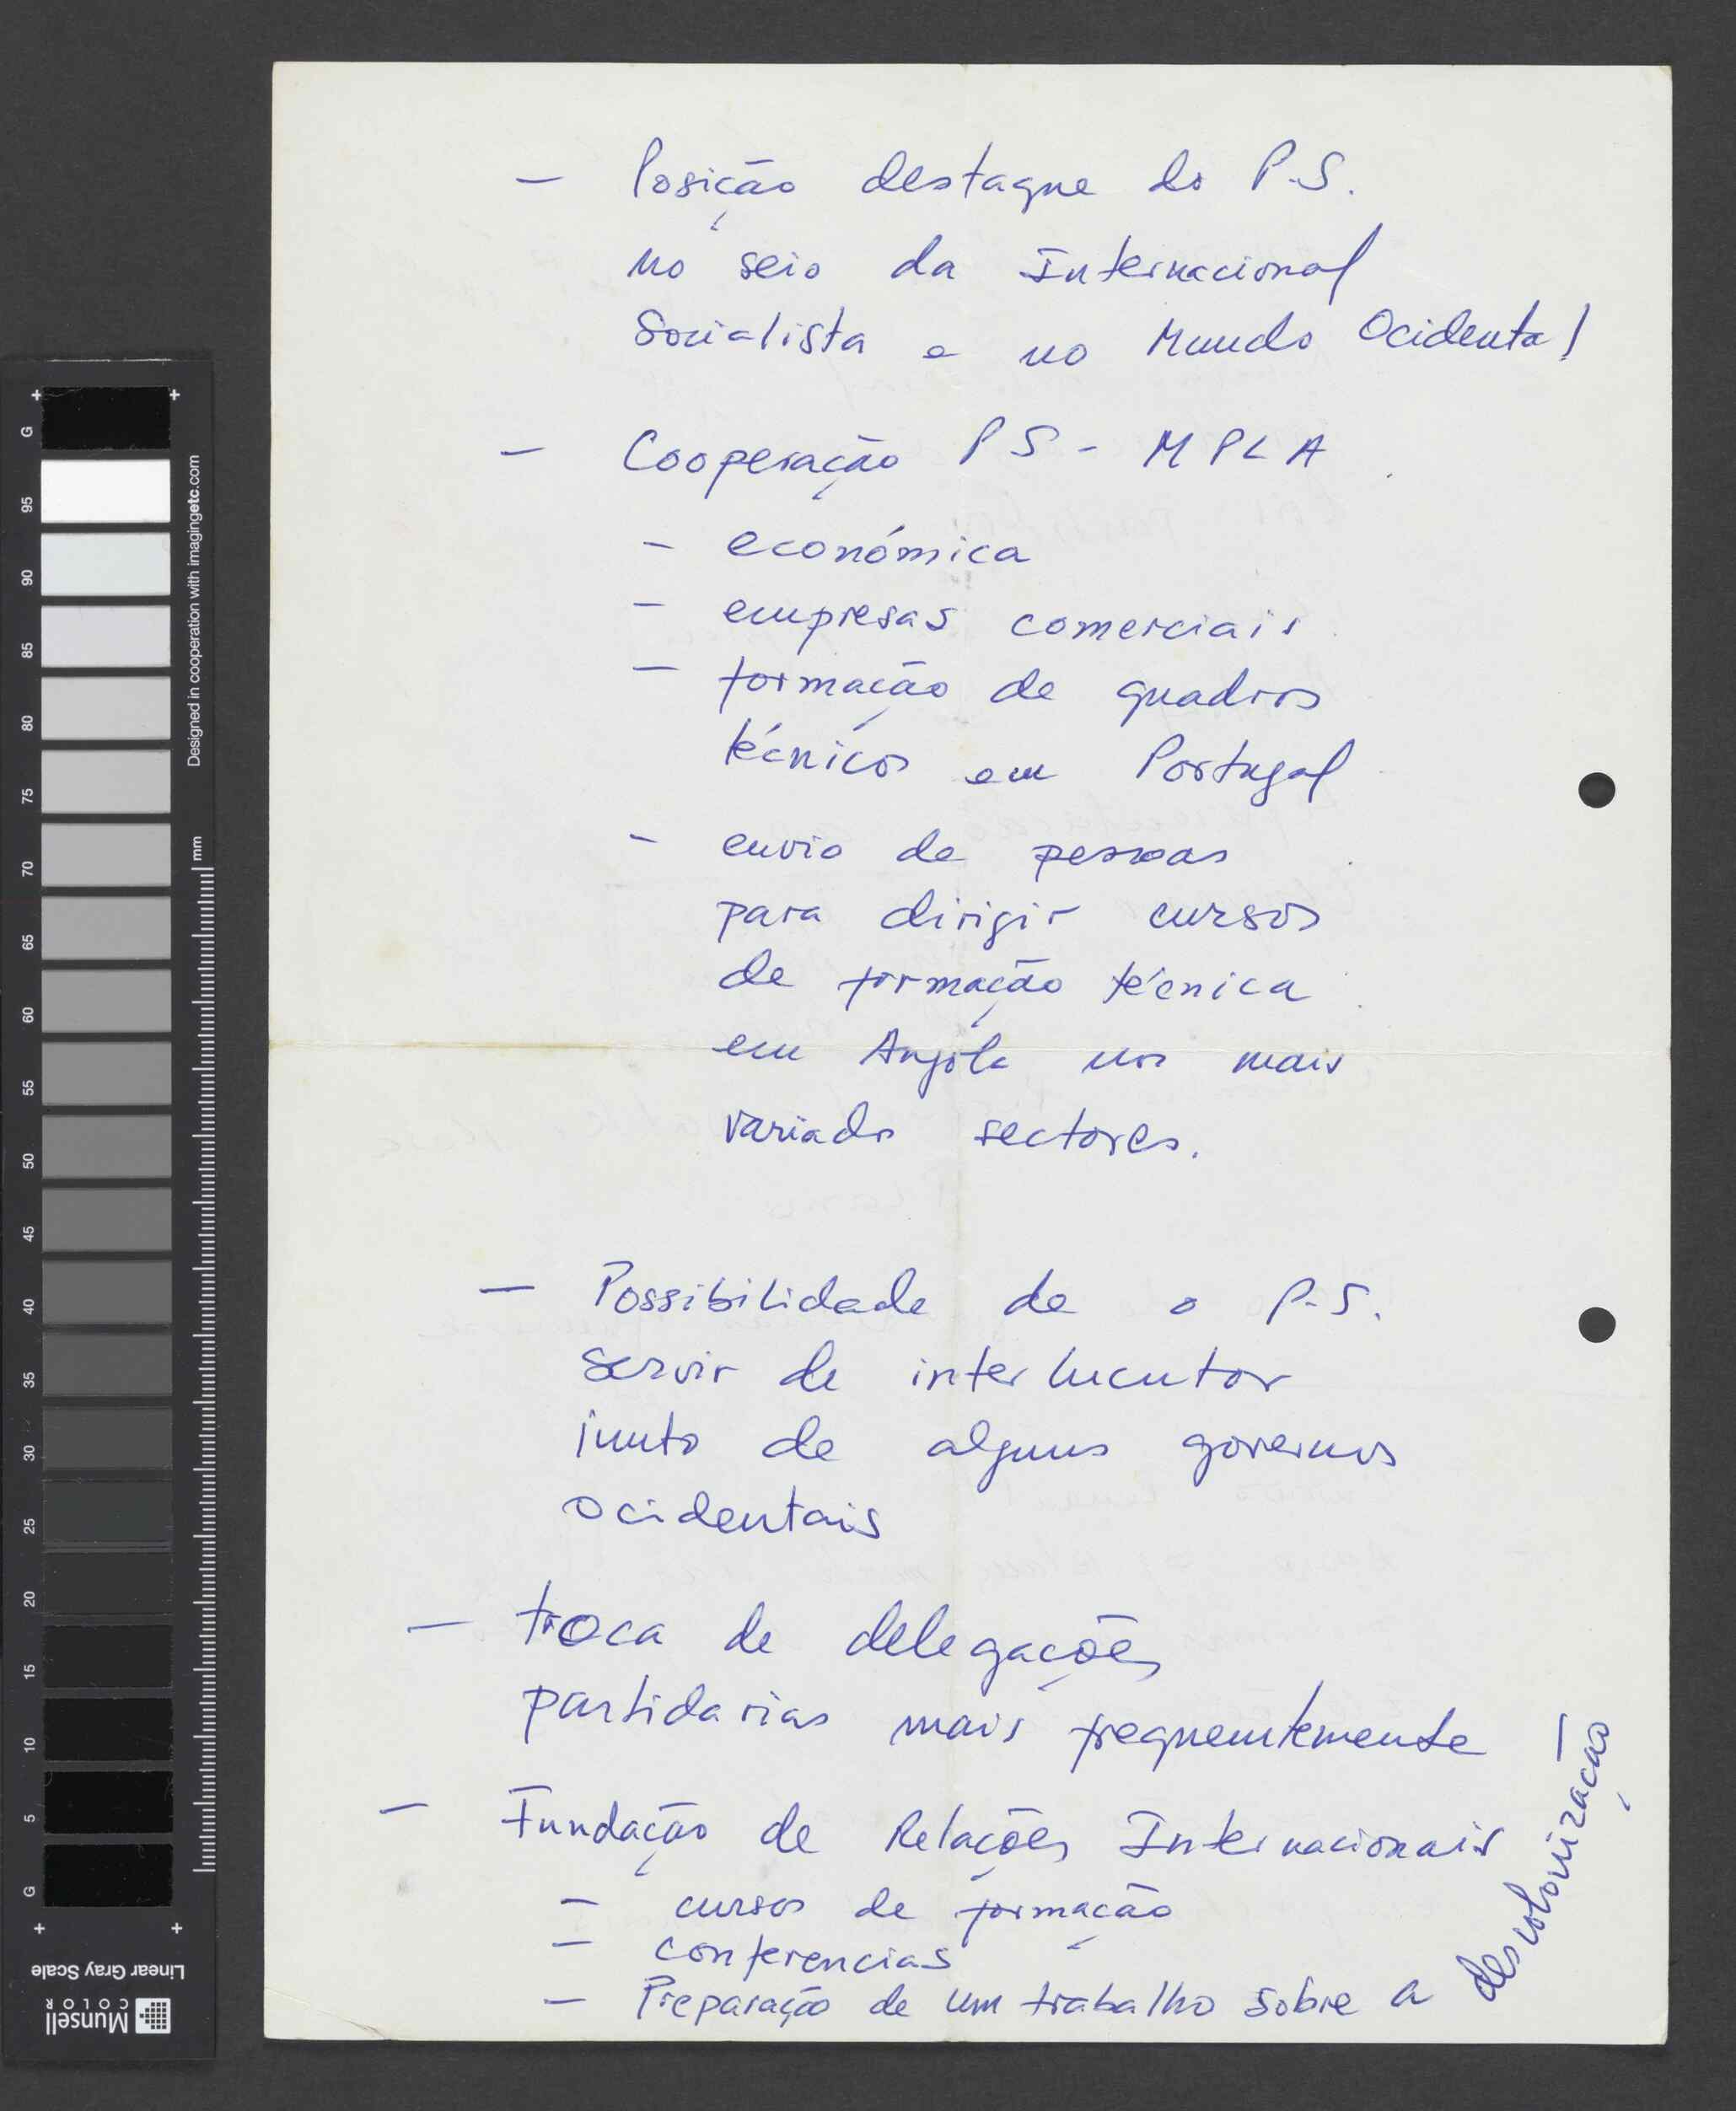 - Posição destaque do P.S.
no seio da Internacional
Socialista e no Mundo Ocidental
- Cooperação PS - MPLA
- económica
- empresas comerciais
- formação de quadros
técnicos em Portugal
- envio de pessoas
para dirigir cursos
de formação técnica
em Angola nos mais
variados sectores.
- Possibilidade de o P.S.
servir de interlucutor
junto de alguns governos
ocidentais
- troca de delegações
partidarias mais frequentemente
- Fundação de Relações Internacionais
- cursos de formação
- conferencias
- Preparação de um trabalho sobre a descolonização
G
95
90
85
80
75
70
65
60
55
50
45
40
35
30
25
20
15
10
5
G
mm
Designed in cooperation with imagingetc.com
Linear Gray Scale
Munsell
COLOR